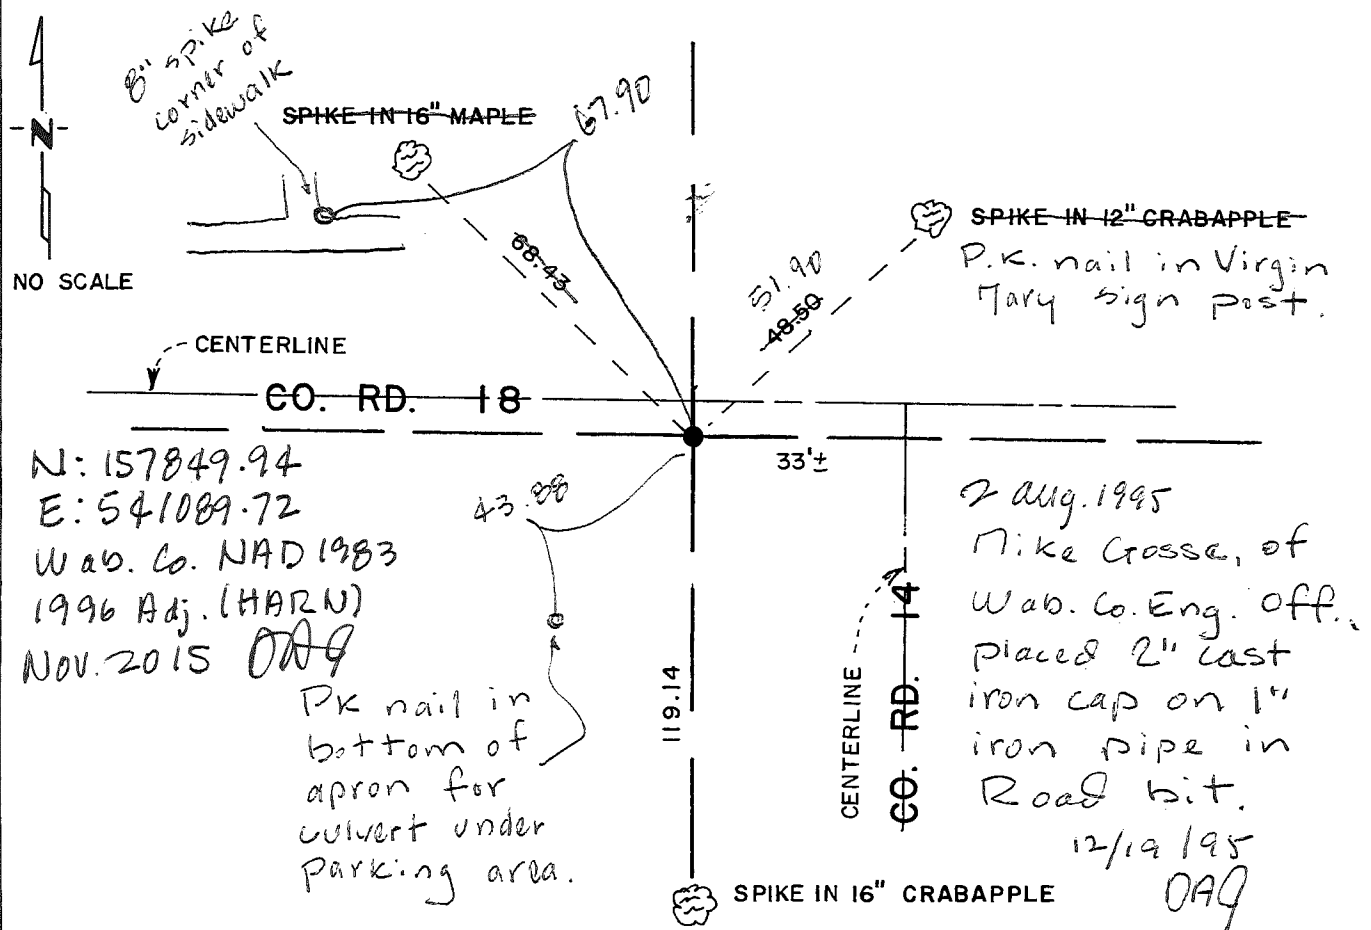 8" spike
corner of
sidewalk
SPIKE IN 16" MAPLE
67.90
N
NO SCALE
68.43
51.90
48.50
SPIKE IN 12" CRABAPPLE
P.K. nail in Virgin
Mary sign post.
CENTERLINE
CO. RD. 18
33'±
N: 157849.94
E: 541089.72
Wab. Co. NAD 1983
1996 Adj. (HARN)
Nov. 2015 OAJ
43.88
PK nail in
bottom of
apron for
culvert under
parking area.
119.14
CENTERLINE
CO. RD. 14
2 Aug. 1995
Mike Gosse, of
Wab. Co. Eng. Off.,
placed 2" cast
iron cap on 1"
iron pipe in
Road bit.
12/19/95
OAJ
SPIKE IN 16" CRABAPPLE